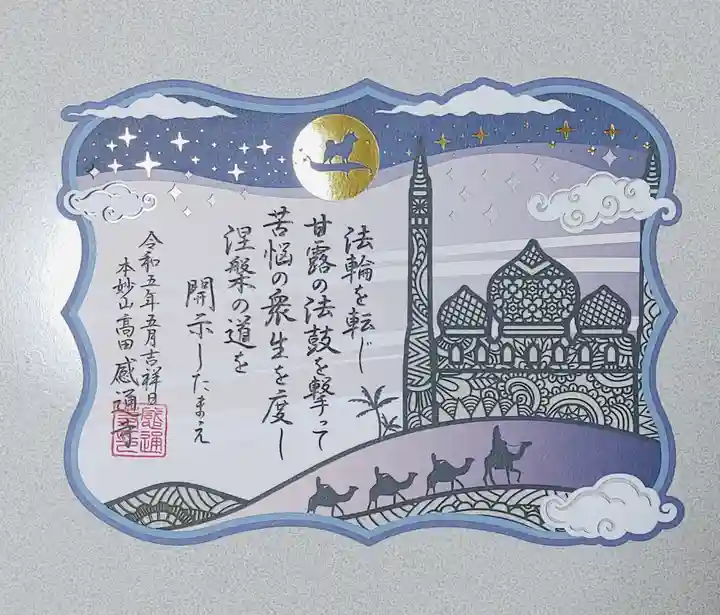 法輪を転じ
甘露の法鼓を撃って
苦悩の衆生を度し
涅槃の道を
開示したまえ
令和五年五月吉祥日
本妙山高田感通寺
感通